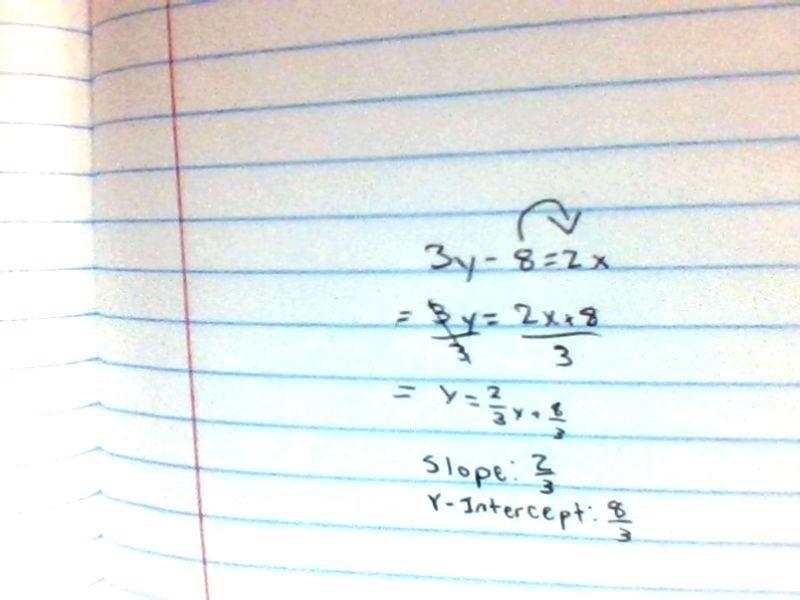 3y - 8 = 2x
= 3y/3 = 2x + 8/3
= y = 2/3 x + 8/3
Slope: 2/3
Y-Intercept: 8/3